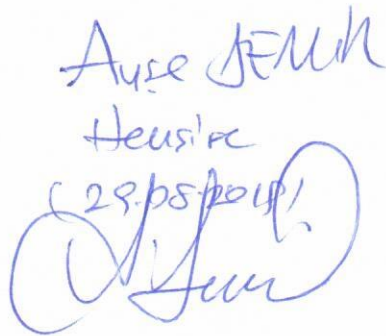 Ayşe DEMİR
Hemşire
(29.08.2018)